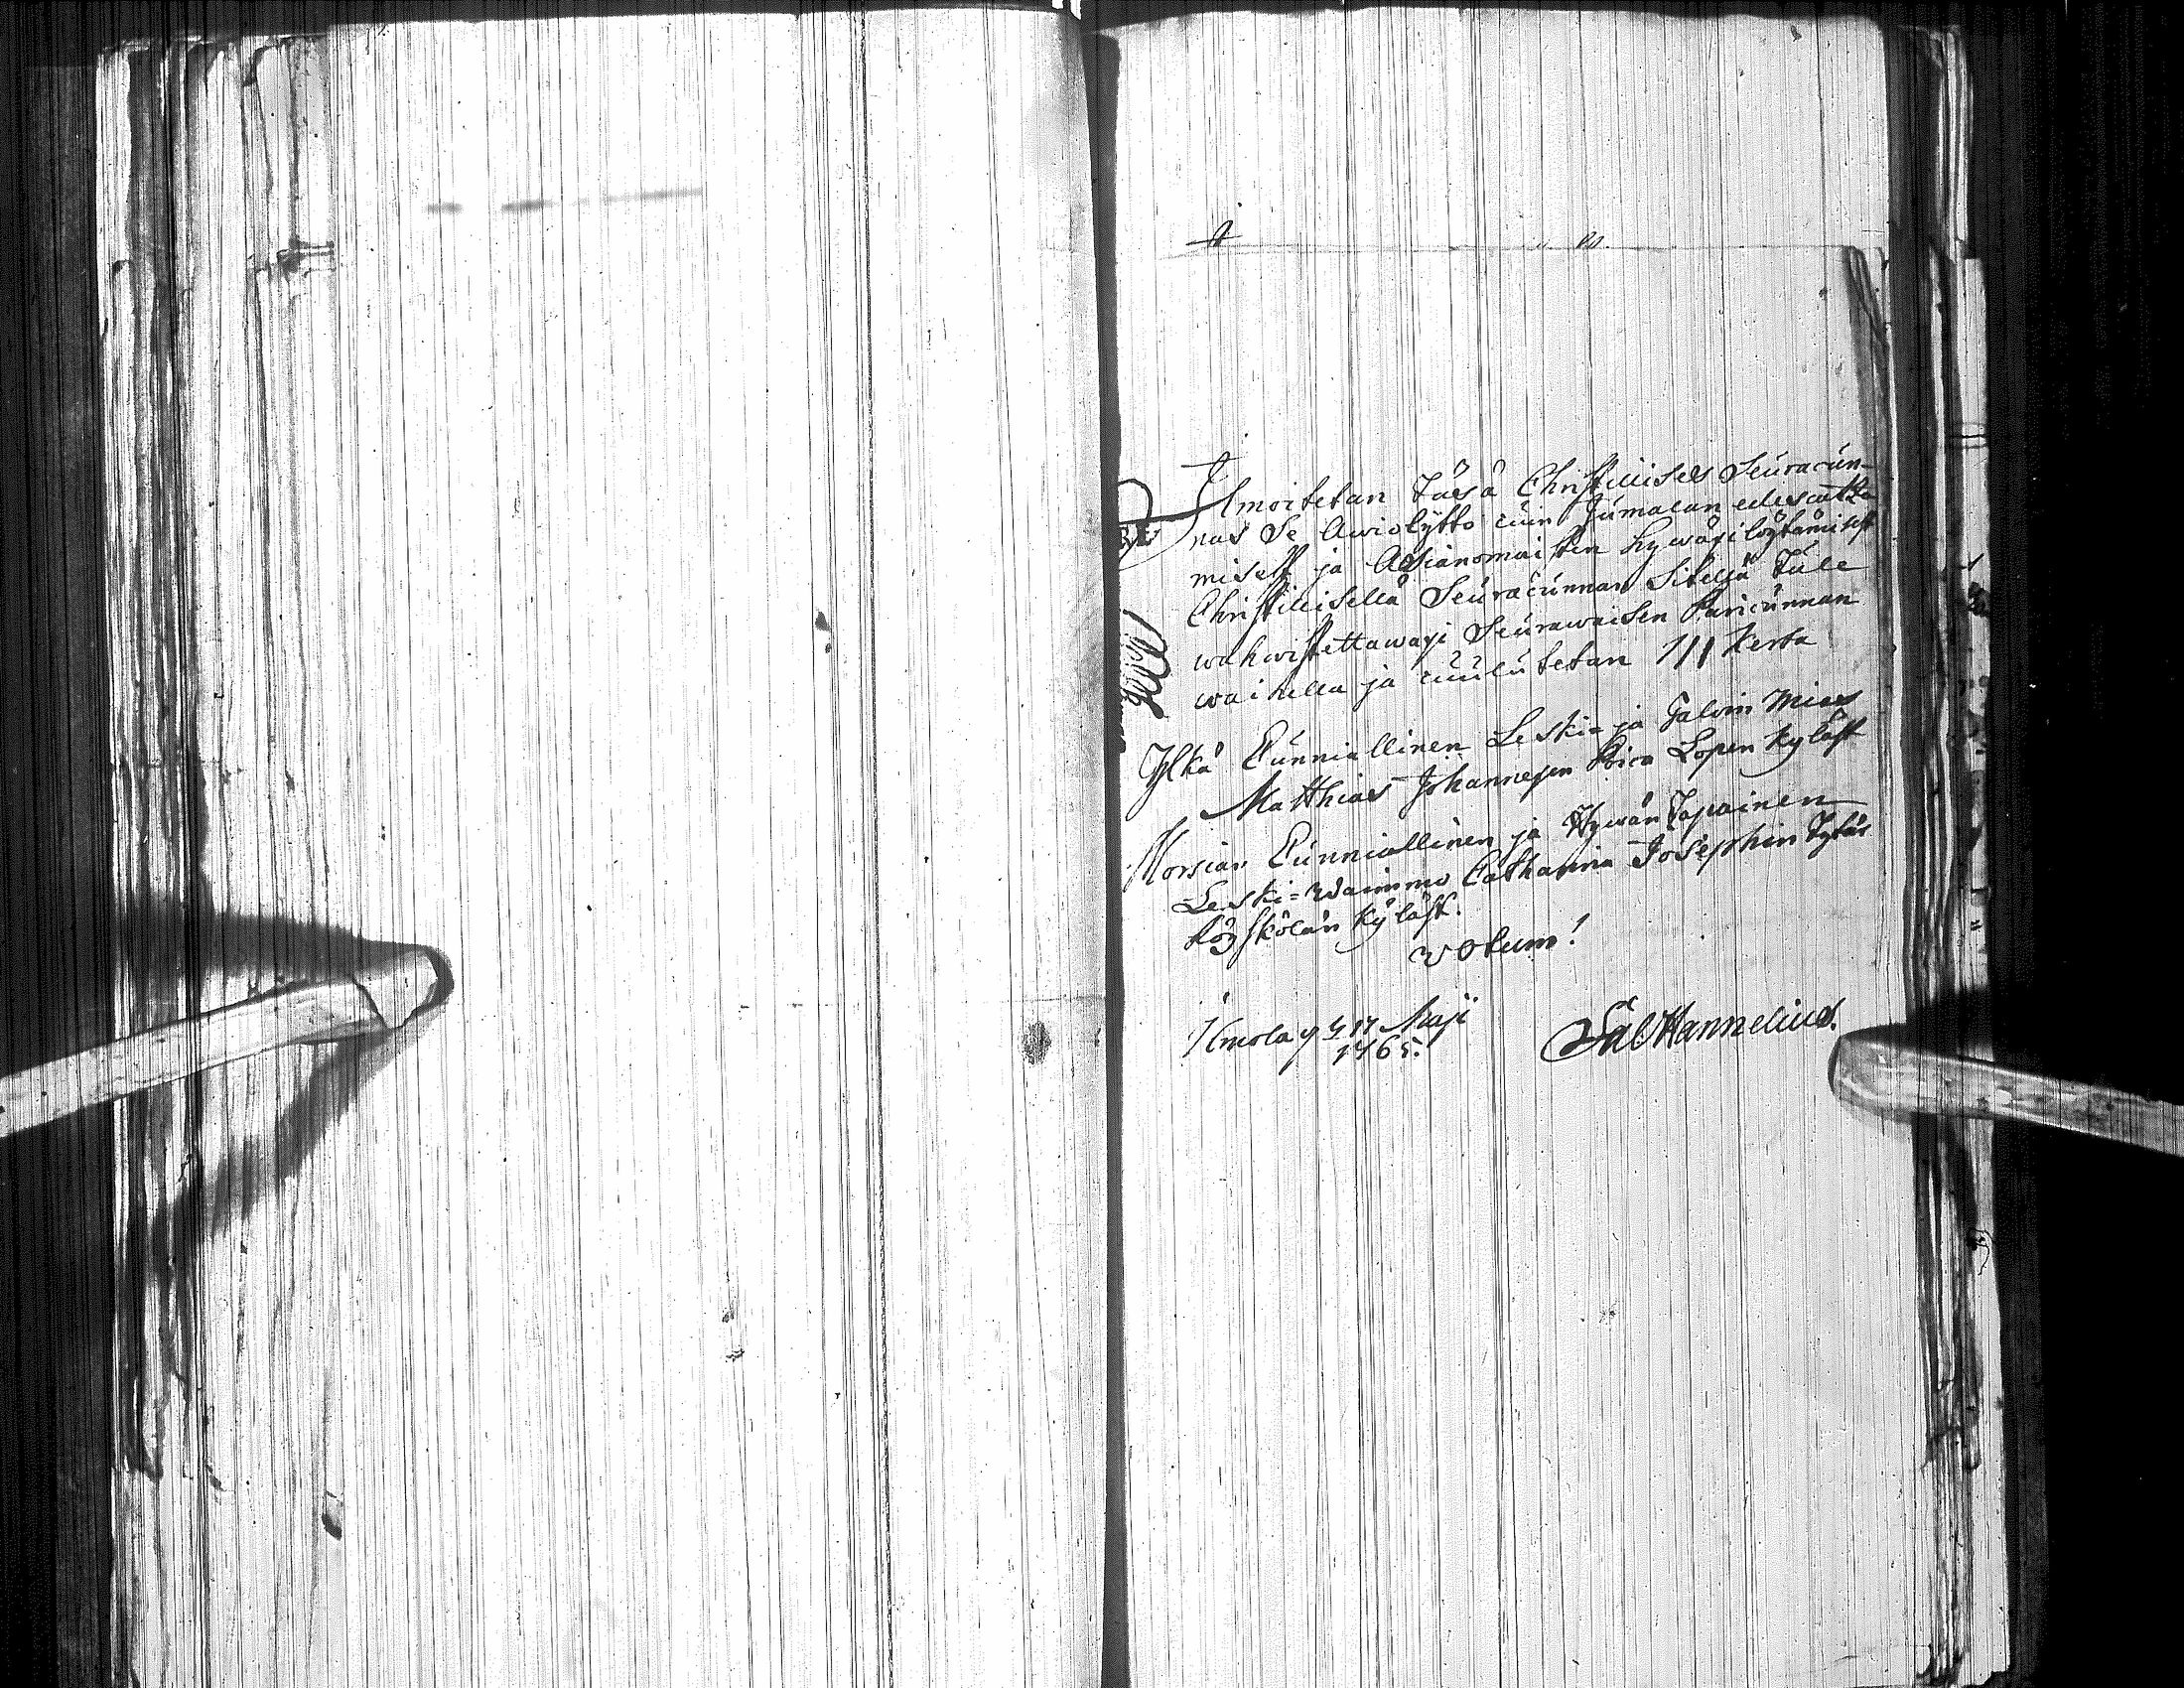 Ilmoitetan täsä Christillises Seuracun-
nas Se Awiolijtto cuin Jumalan edescatzo
misest ja Asianomaisten hywäxi löytämisest
Christillisellä Seuracunnan Sitellä Tule
wahwistettawaxi Seurawaisen Paricunnan
waihella ja cuulutetan III Kerta
Ylkä Cunniallinen Leski- ja Taloin Mies
Matthias Johannexen Poica Lopen Kyläst
Morsian Cunniallinen ja Hywän Tapainen
Leski-Waimmo Catharina Josephin Tytär
Kyläst.
Votum!
Maji
1765.
Sal Hannelius.